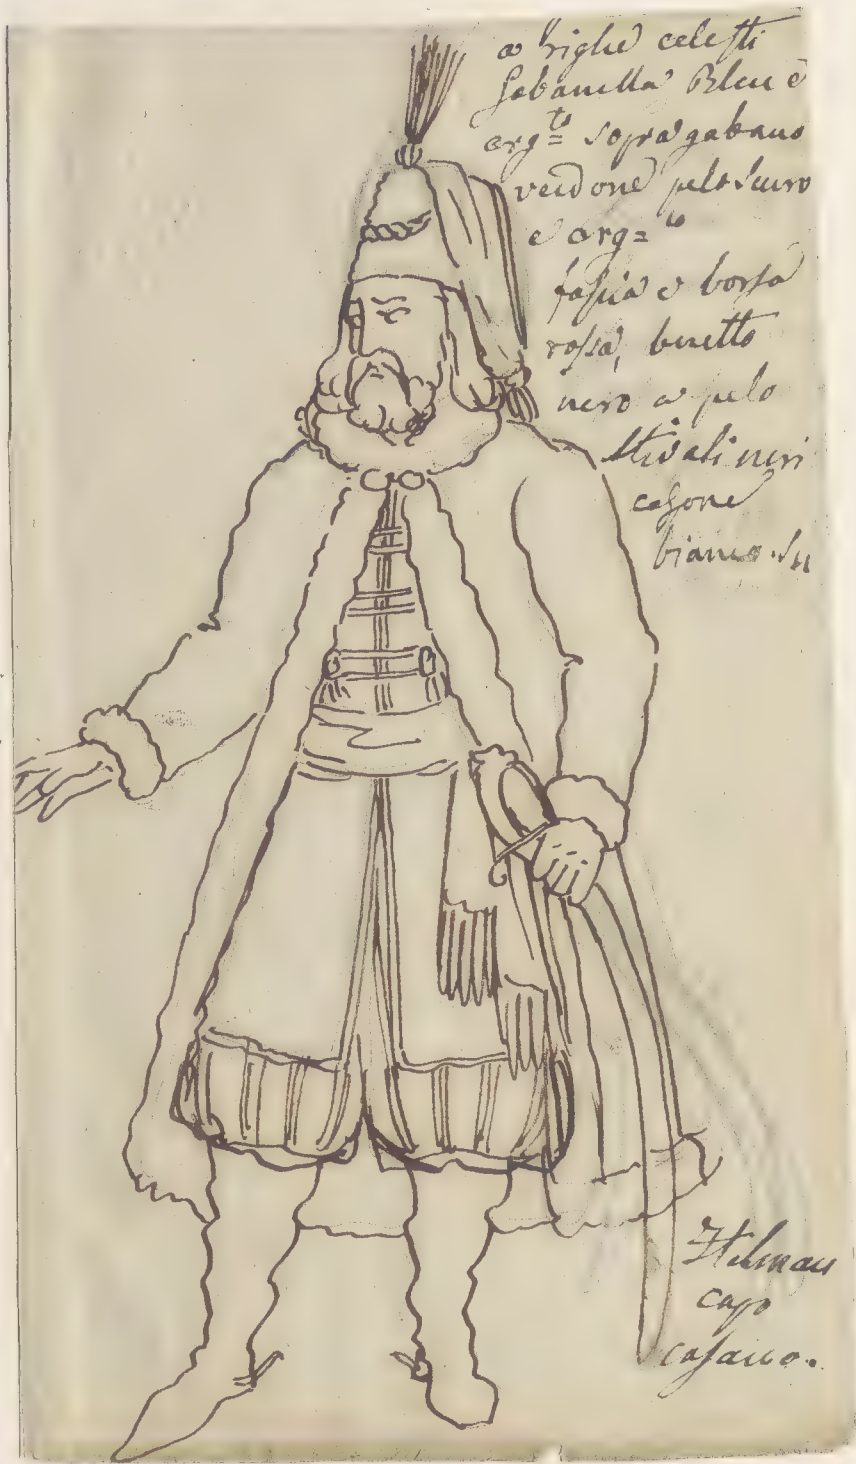 a righe celesti
Gabanella Bleu e
arg=to sopra gabano
verdone pelo scuro
e arg=to
fascia e borsa
rossa, beretto
nero a pelo
stivali neri
casone
bianco. Su
Hetman
capo
cosacco.